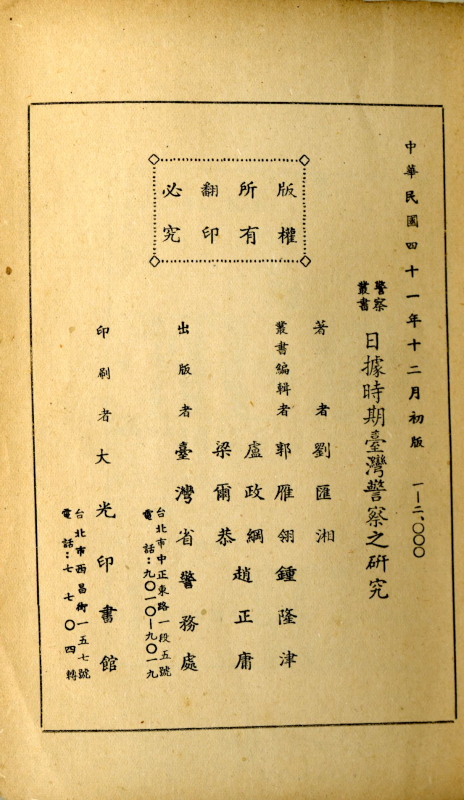 中華民國四十一年十二月初版 一—二、〇〇〇
警察叢書
日據時期臺灣警察之研究
版權
所有
翻印
必究
著者 劉匯湘
叢書編輯者 郭雁翎 鍾隆津
盧政綱 趙正庸
梁爾恭
出版者 臺灣省警務處
台北市中正東路一段五號
電話：九〇一〇—九〇一九
印刷者 大光印書館
台北市西昌街一五七號
電話：七七〇四轉